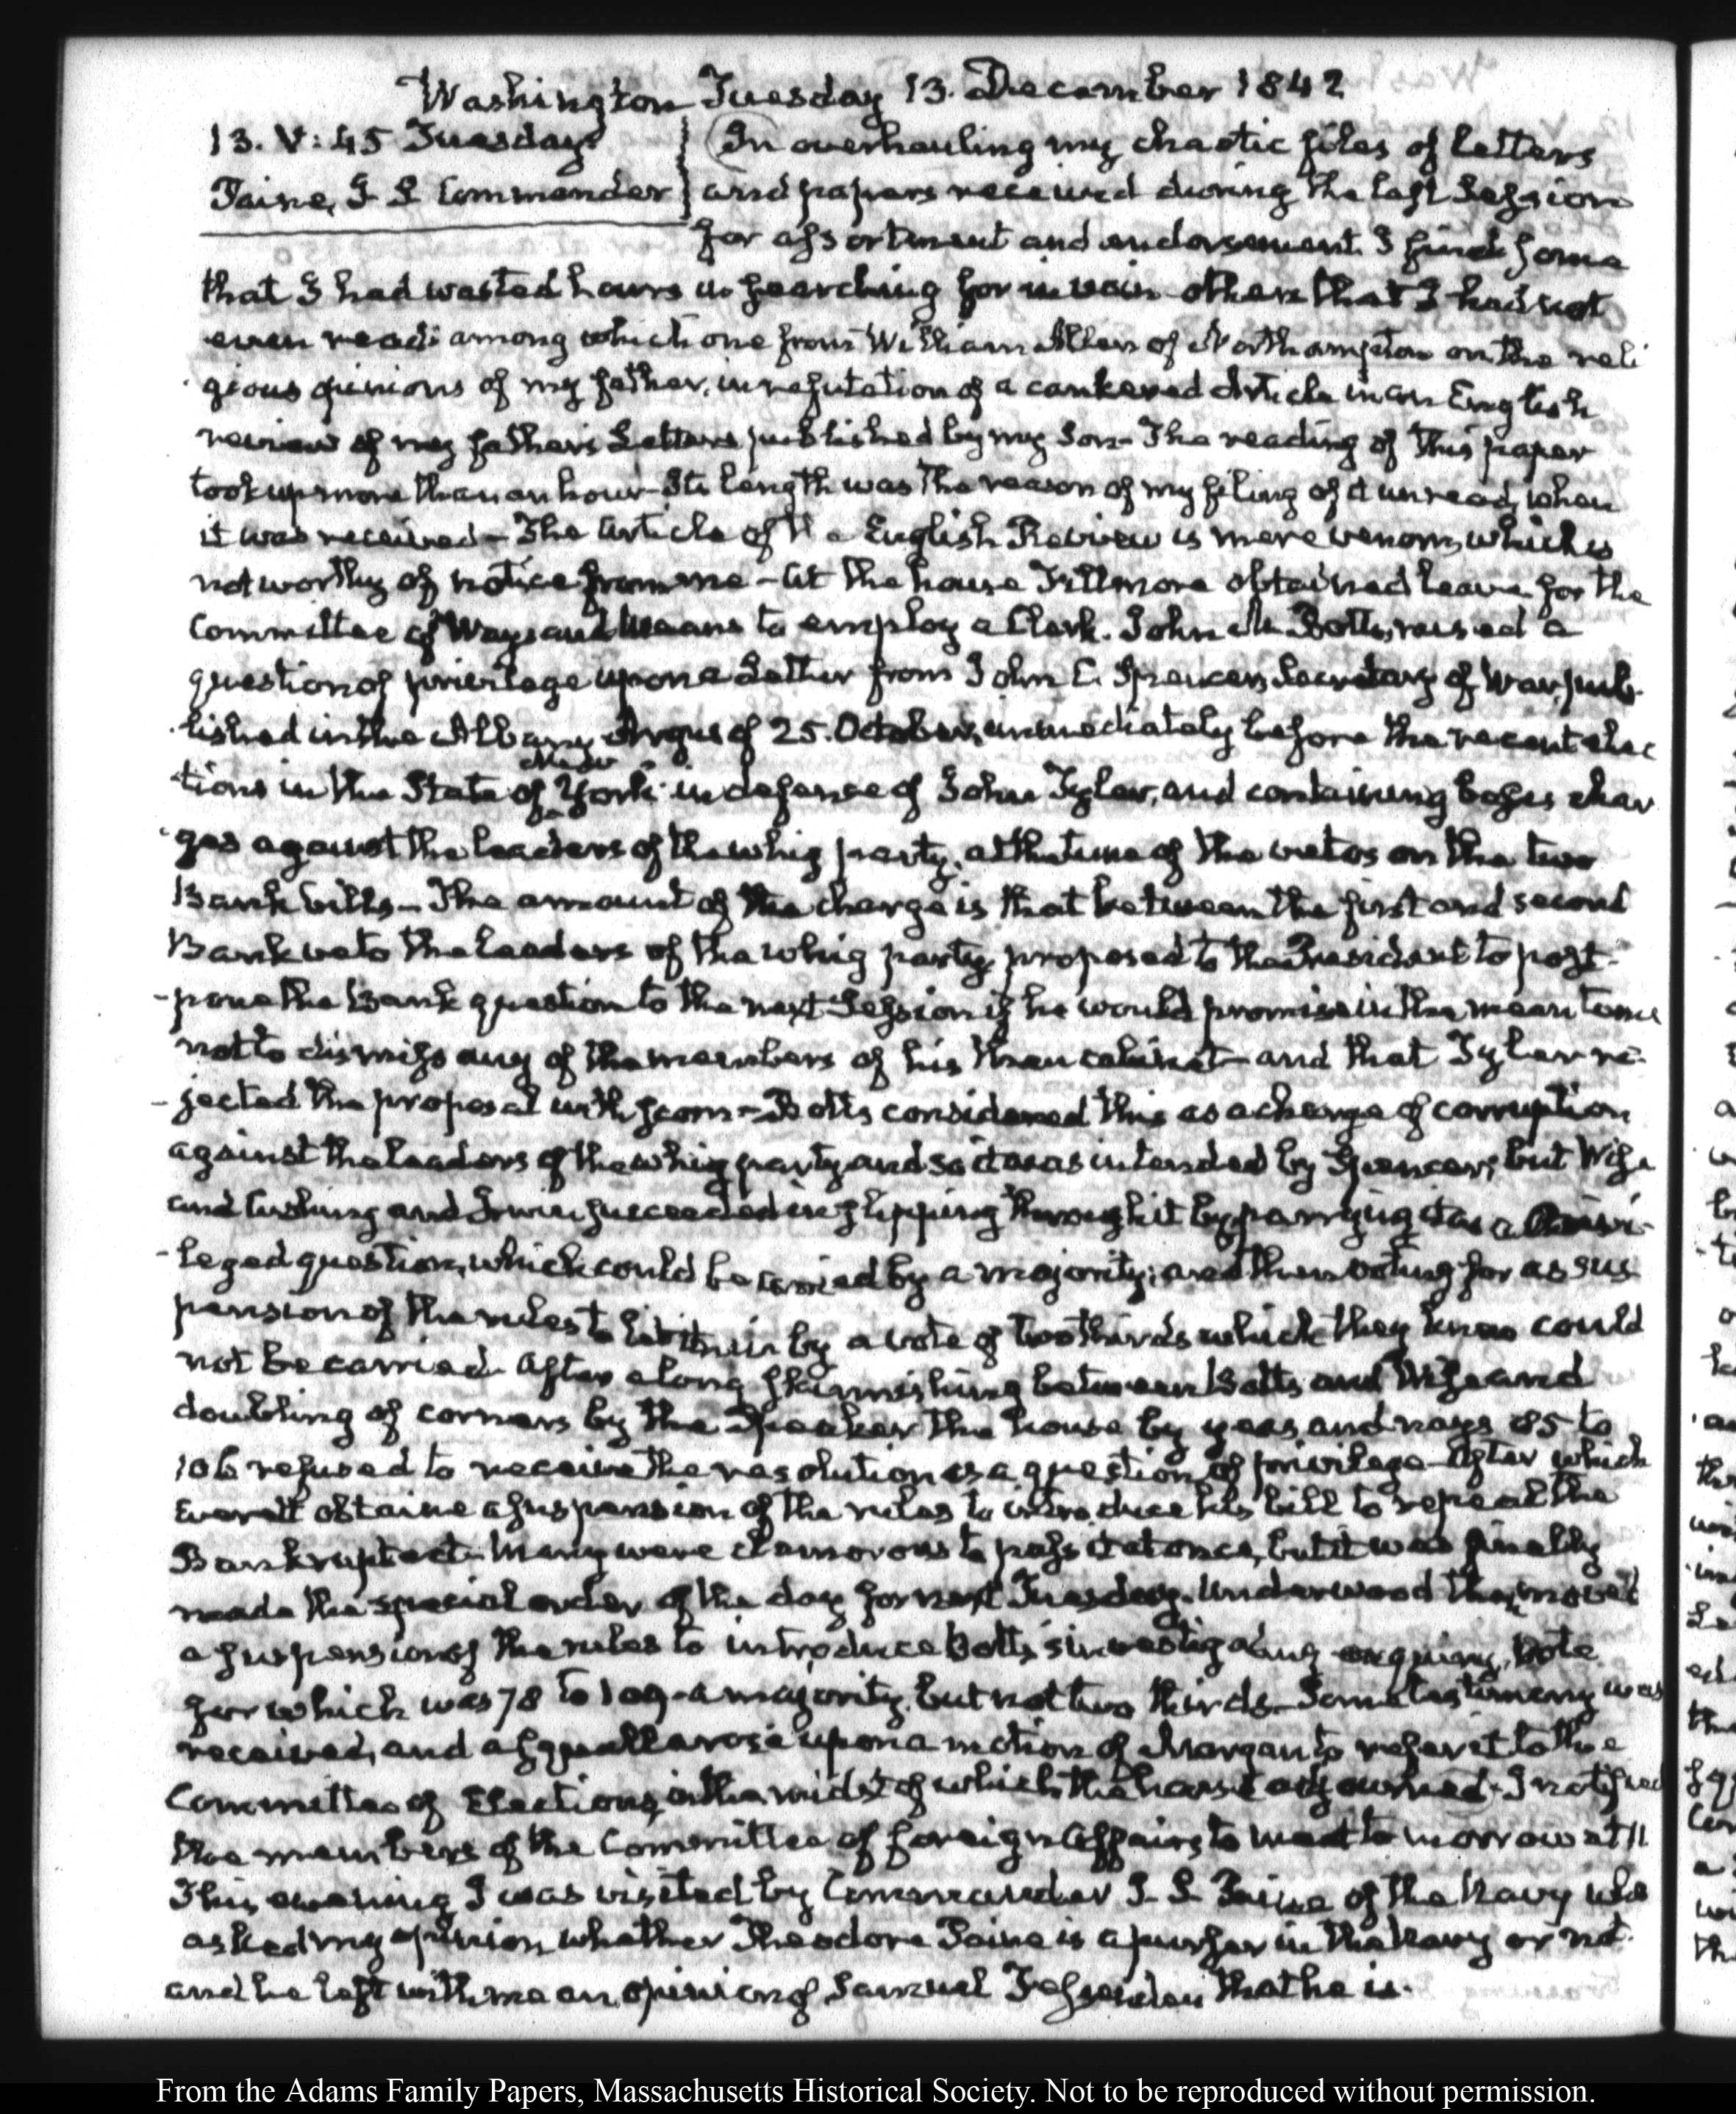 Washington Tuesday 13. December 1842
13. V: 45 Tuesday
Paine, J S Commander
In overhauling my chaotic files of letters
and papers received during the last Session
for assortment and endorsement I find some
that I had wasted hours in searching for in vain others that I had not
even read: among which one from William Allen of Northampton on the reli
gious opinions of my father, in refutation of a cankered Article in an English
review of my father's Letters published by my Son- The reading of this paper
took up more than an hour- Its length was the reason of my filing of it unread, when
it was received- The Article of the English Review is mere venom, which is
not worthy of notice from me- At the house Fillmore obtained leave for the
Committee of Ways and Means to employ a Clerk. John M. Botts, raised a
question of privilege upon a Letter from John C. Spencer, Secretary of War, pub-
lished in the Albany Argus of 25. October, immediately before the recent elec
tions in the State of New York in defence of John Tyler, and containing base char
ges against the leaders of the whig party, at the time of the vetos on the two
Bank bills- The amount of the charge is that between the first and second
Bank veto the leaders of the whig party proposed to the President to post-
-pone the Bank question to the next Session if he would promise in the mean time
not to dismiss any of the members of his then cabinet- and that Tyler re-
-jected the proposal with scorn- Botts considered this as a charge of corruption
against the leaders of the whig party and so it was intended by Spencer; but Wise
and Cushing and Irwin succeeded in slipping through it by parrying it as a Privi-
-leged question, which could be carried by a majority; and then voting for a sus
pension of the rules to let it in by a vote of two thirds which they knew could
not be carried. After a long skirmishing between Botts and Wise and
doubling of corners by the Speaker the house by yeas and nays 85 to
106 refused to receive the resolution as a question of privilege- After which
Everett obtaine a suspension of the rules to introduce his bill to repeal the
Bankrupt act- Many were clamorous to pass it at once, but it was finally
made the special order of the day for next Tuesday. Underwood then moved
a suspension of the rules to introduce Botts's investigating enquiry, vote
for which was 78 to 109- a majority, but not two thirds- Some testimony was
received, and a squall arose upon a motion of Morgan to refer it to the
Committee of Elections, in the midst of which the house adjourned- I notified
the members of the Committee of foreign Affairs to meet to morrow at 11
This evening I was visited by Commander J. S. Paine of the Navy who
asked my opinion whether Theodore Paine is a purser in the Navy or not.
and he left with me an opinion of Samuel Fessenden that he is.
From the Adams Family Papers, Massachusetts Historical Society. Not to be reproduced without permission.